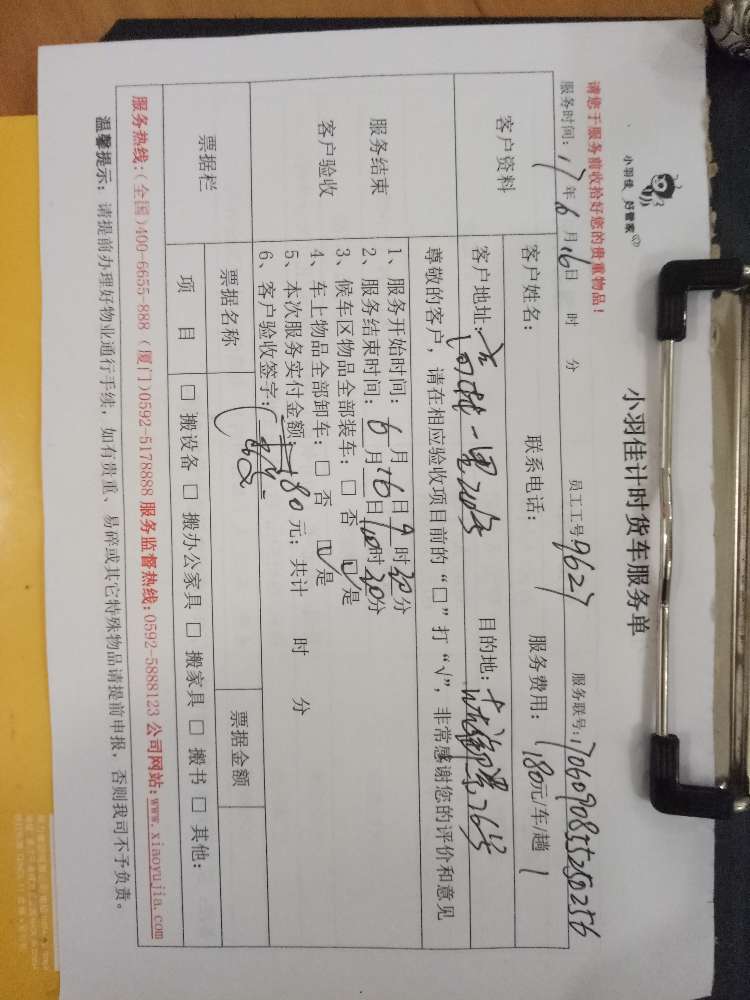 小羽佳 好管家
小羽佳计时货车服务单
请您于服务前收拾好您的贵重物品!
服务时间: 17年6月16日 时 分 员工工号: 9627 服务联号: 1706090855250256
客户资料
客户姓名: 联系电话: 服务费用: 180元/车/趟
客户地址: 一里20号 目的地: 76号
服务结束
客户验收
尊敬的客户, 请在相应验收项目前的“□”打“√”, 非常感谢您的评价和意见
1、服务开始时间: 6月16日9时30分
2、服务结束时间: 月 日10时30分
3、候车区物品全部装车: □ 否 ☑ 是
4、车上物品全部卸车: □ 否 ☑ 是
5、本次服务实付金额: 180元; 共计 时 分
6、客户验收签字:
票据栏
票据名称 票据金额
项 目 □ 搬设备 □ 搬办公家具 □ 搬家具 □ 搬书 □ 其他:
服务热线:(全国)400-6655-888 (厦门)0592-5178888 服务监督热线:0592-5888123 公司网站:www.xiaoyujia.com
温馨提示: 请提前办理好物业通行手续, 如有贵重、易碎或其它特殊物品请提前申报, 否则我司不予负责。